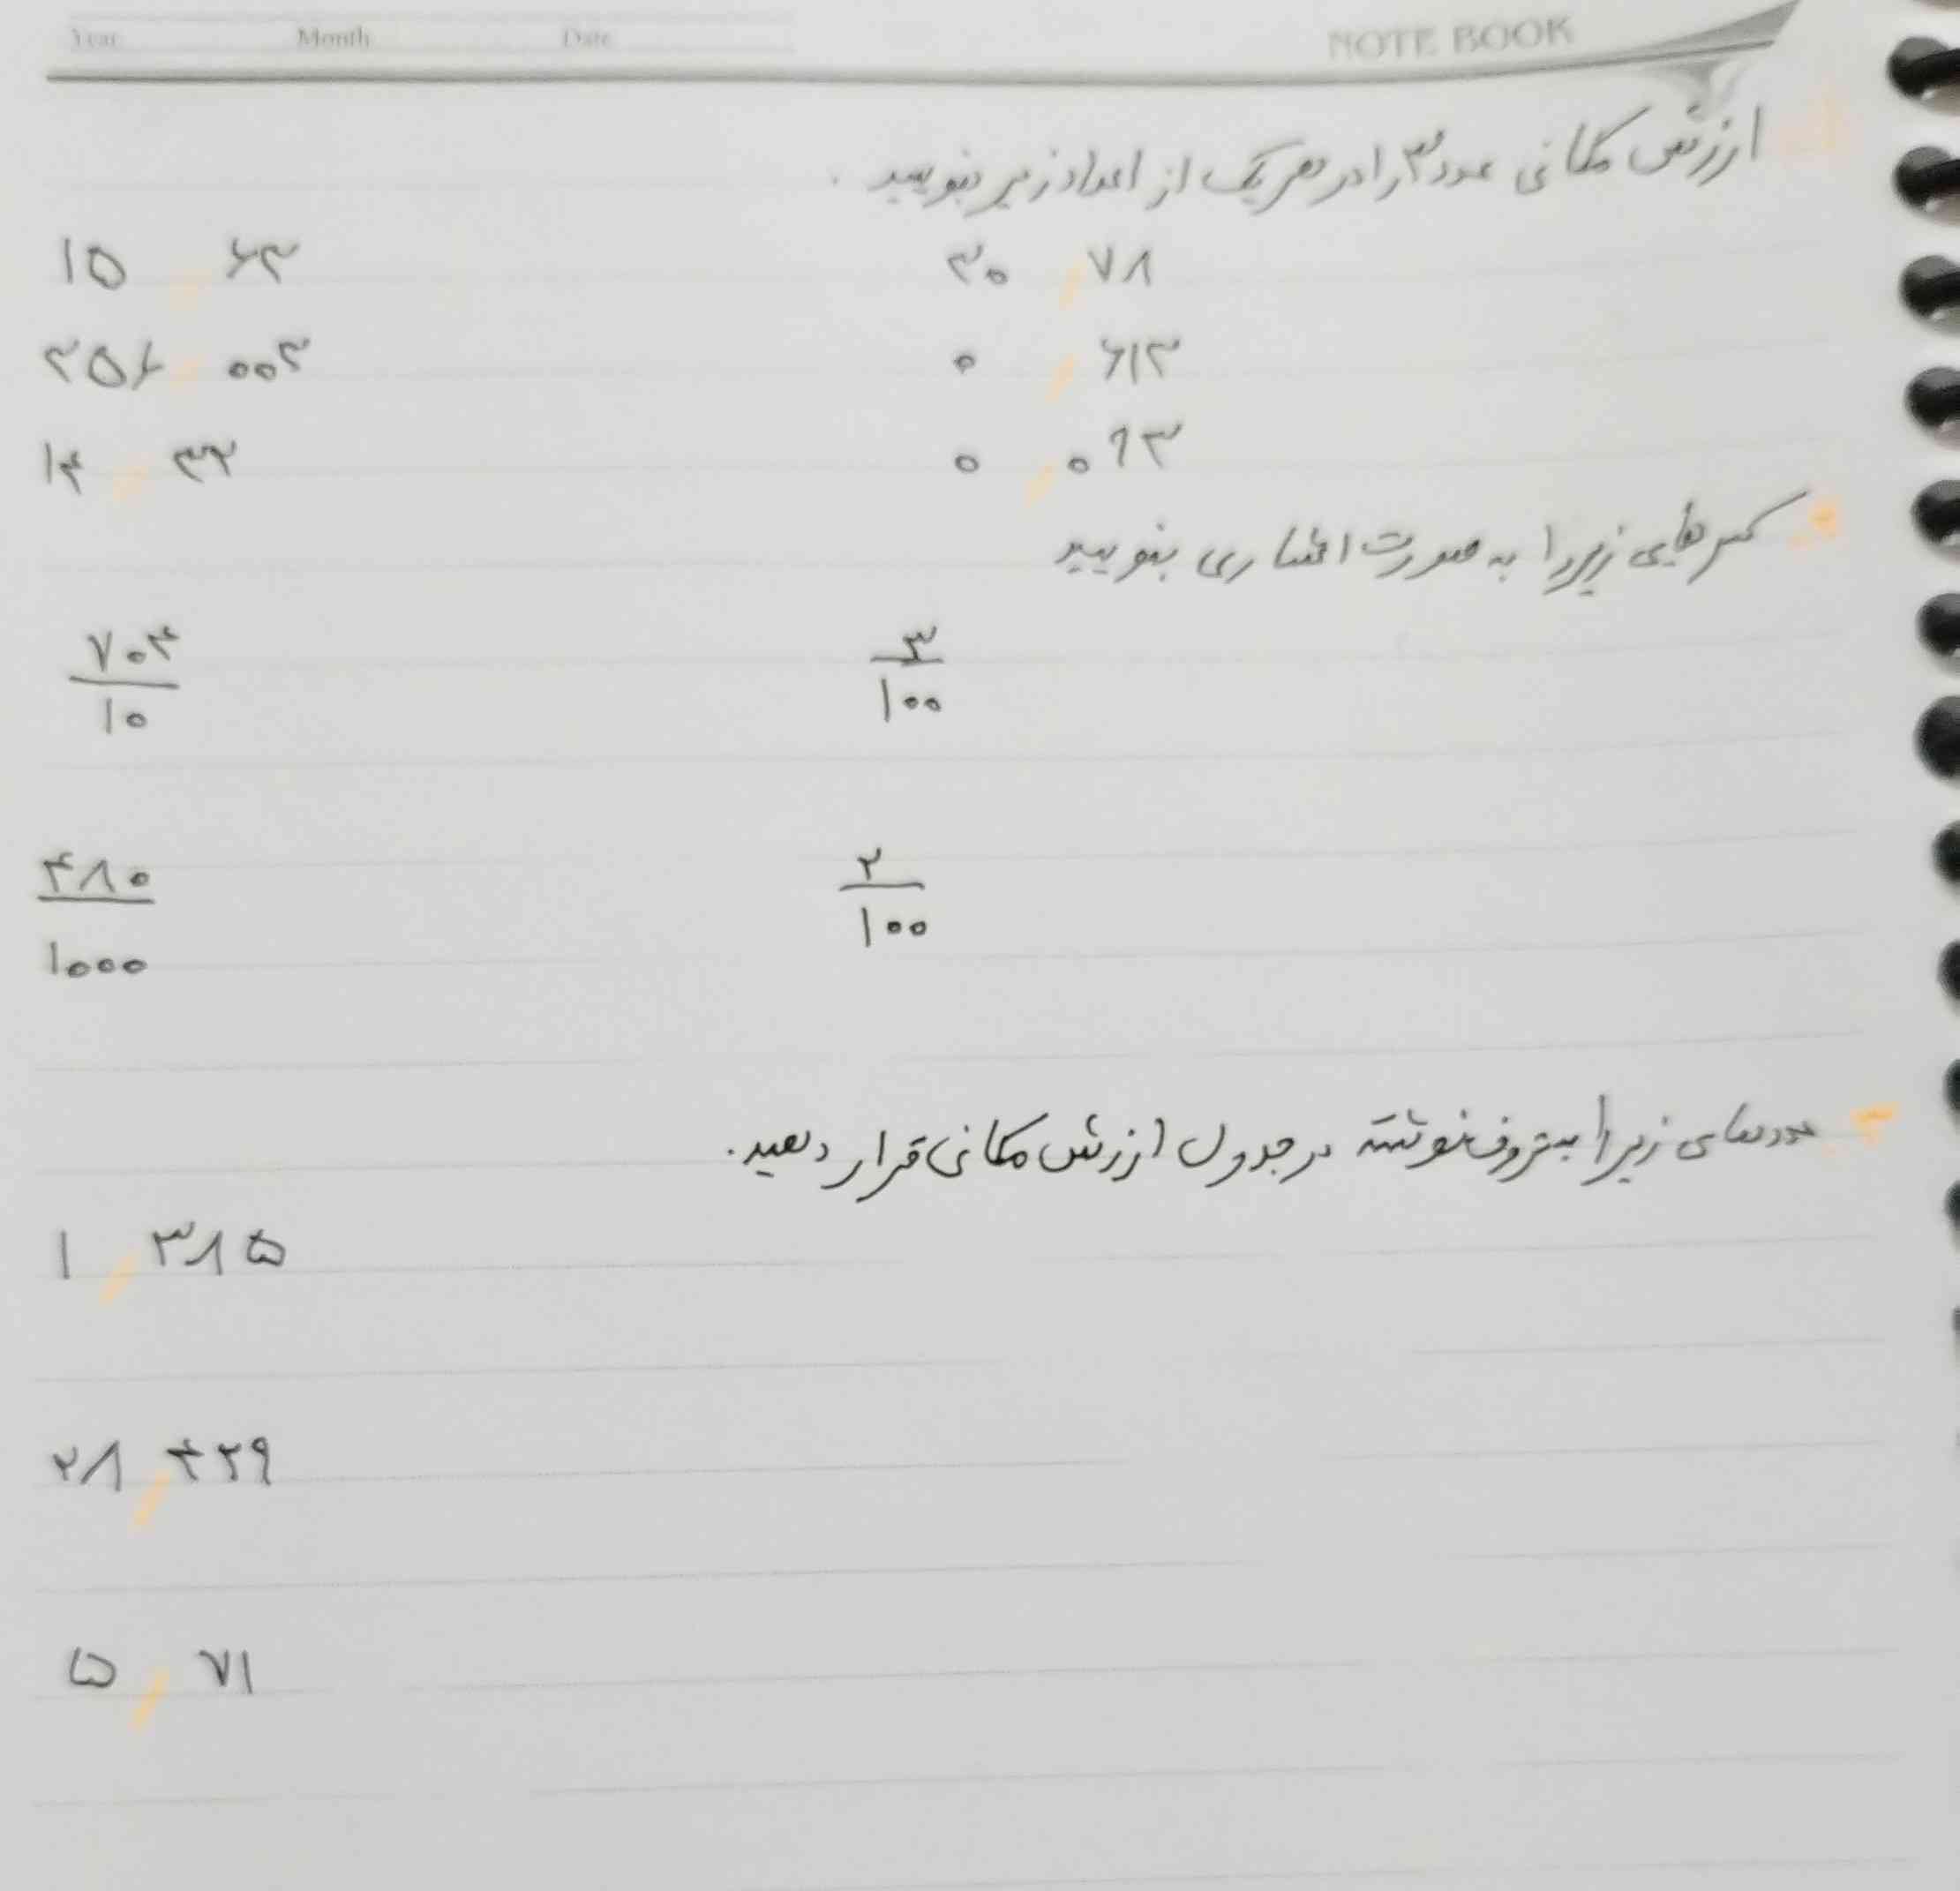 Year Month Date NOTE BOOK
ارزش مکانی عدد ۳ را در هر یک از اعداد زیر بنویسید .
۱۵ / ۶۳ ۳۰ / ۷۸
۳۵۶ / ۰۰۳ ۰ / ۶۱۳
۱۴ / ۳۲ ۰ / ۰۹۳
۲ کسر هایی زیر را به صورت اعشاری بنویسید
۷۰۴/۱۰ ۳/۱۰۰
۴۸۰/۱۰۰۰ ۲/۱۰۰
۳ عددهای زیر را بحروف نوشته در جدول ارزش مکانی قرار دهید.
۱ / ۳۸۵
۲۸ / ۴۲۹
۵ / ۷۱